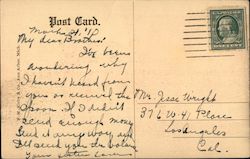 Post Card.
My dear Brother:
I've been
wondering why
I haven't heard from
you or received the
spoon. If I didn't
send enough money
send it anyway and
I'll send you the balance
Your sister
Mr. Jesse Wright
376 W. 41 Place
Los Angeles
Cal.